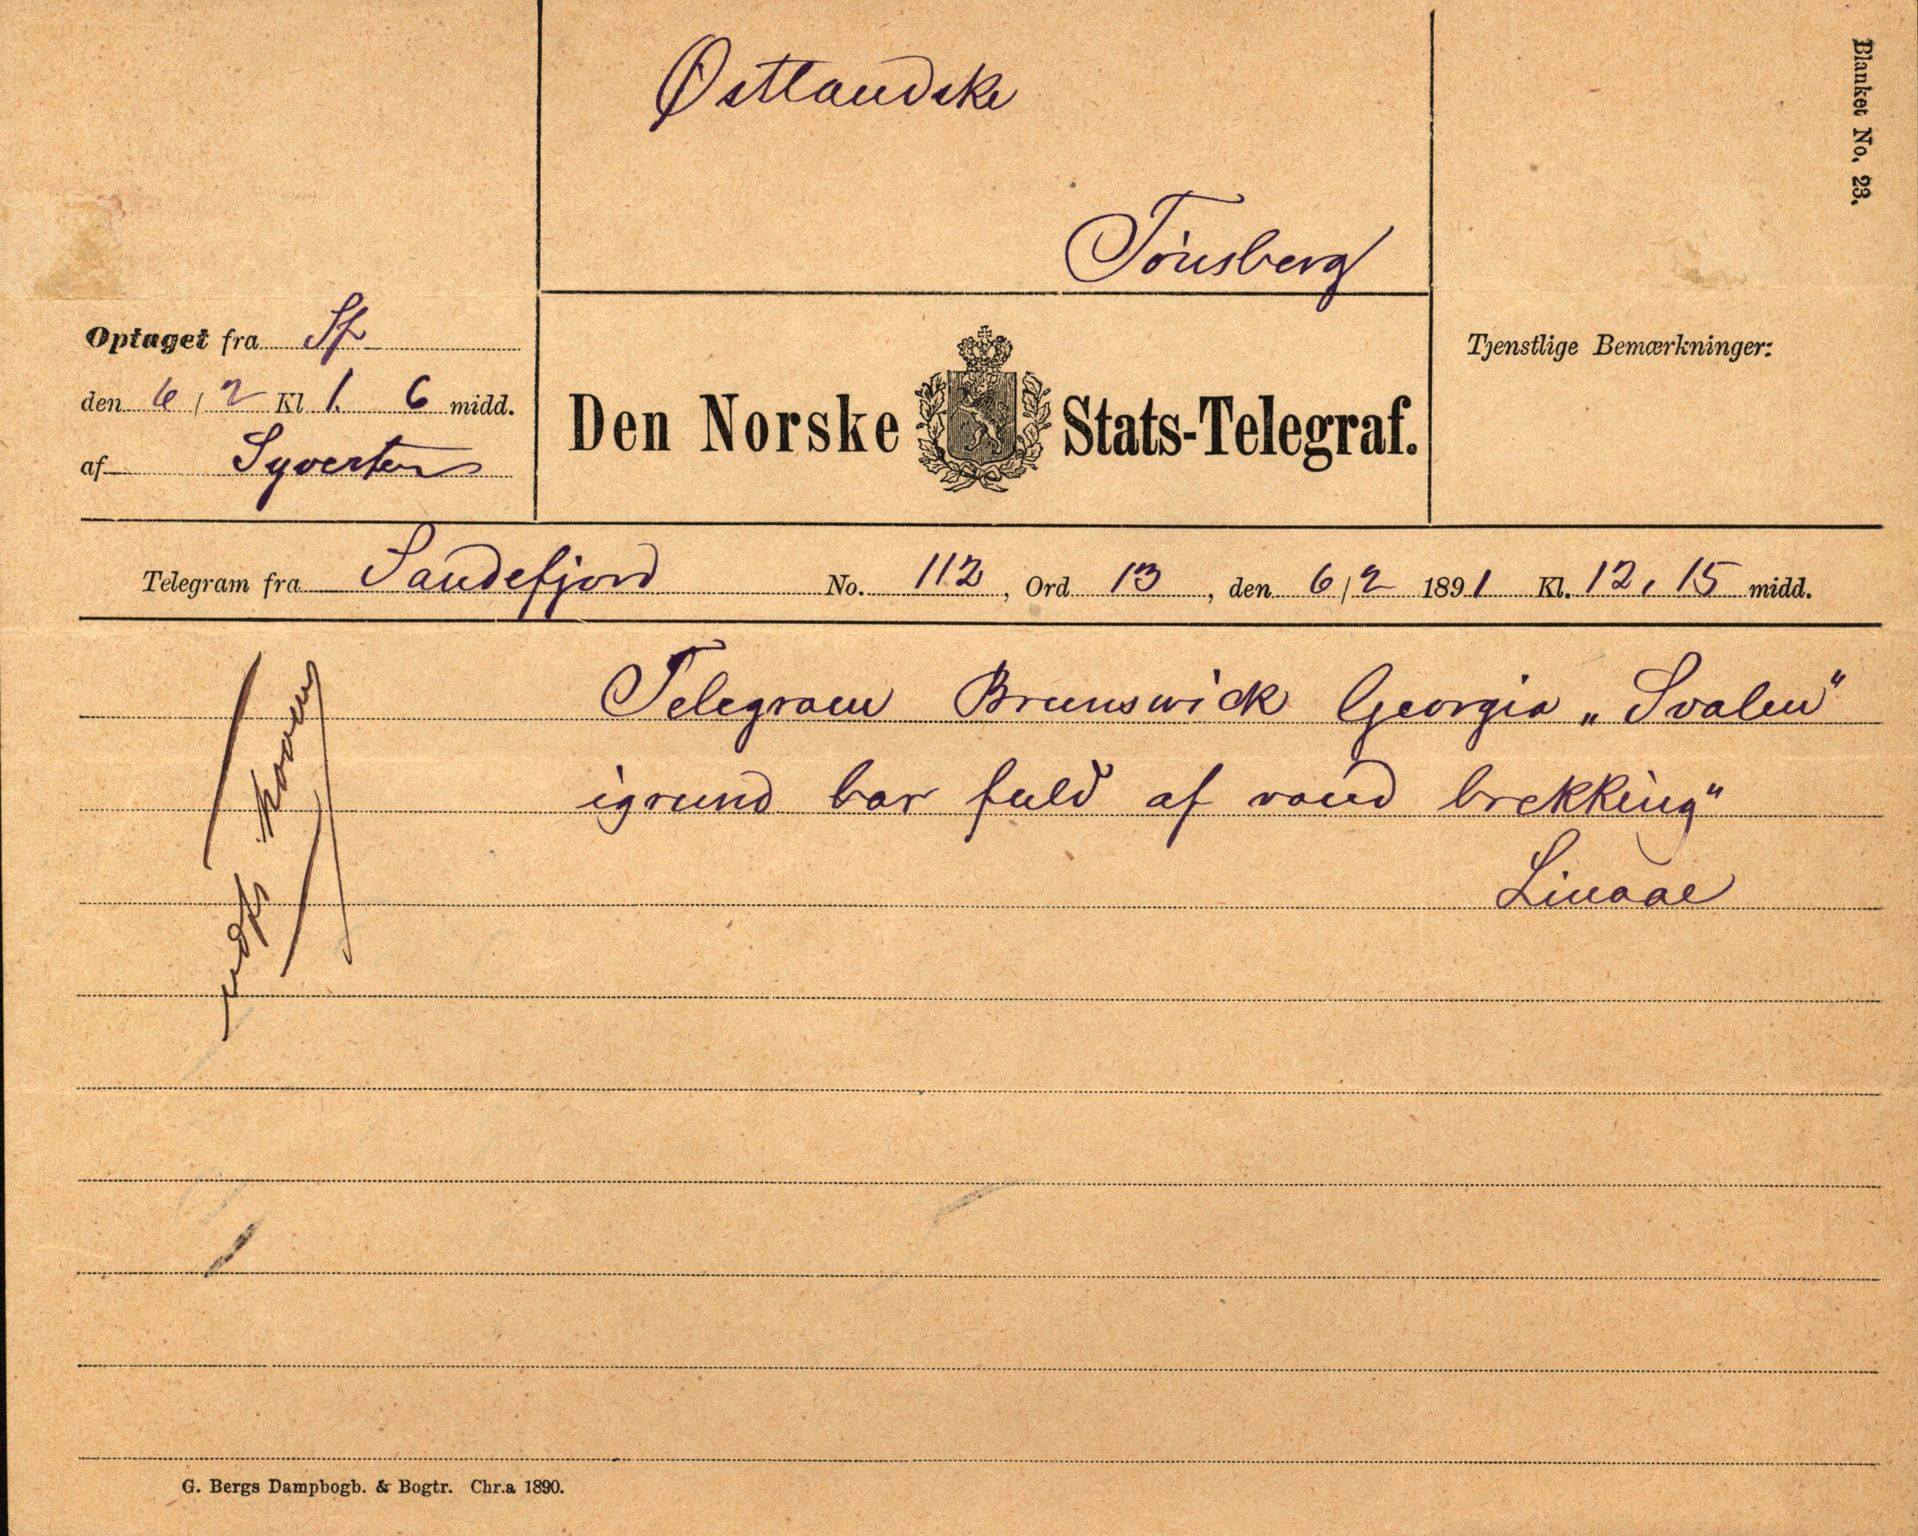 Østlandske
Tönsberg
Blanket No. 23.
Optaget fra Sf
den 6/2 Kl 1. 6 midd.
af Syvertsen
Den Norske Stats-Telegraf.
Tjenstlige Bemærkninger:
Telegram fra Sandefjord No. 112, Ord 13, den 6/2 1891 Kl. 12,15 midd.
Telegram Brunswick Georgia „Svalen"
igrund bar fuld af vand brekking"
Linaae
G. Bergs Dampbogb. & Bogtr. Chr.a 1890.